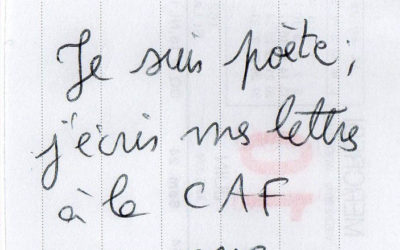 Je suis poète ;
j'écris mes lettres
à la CAF